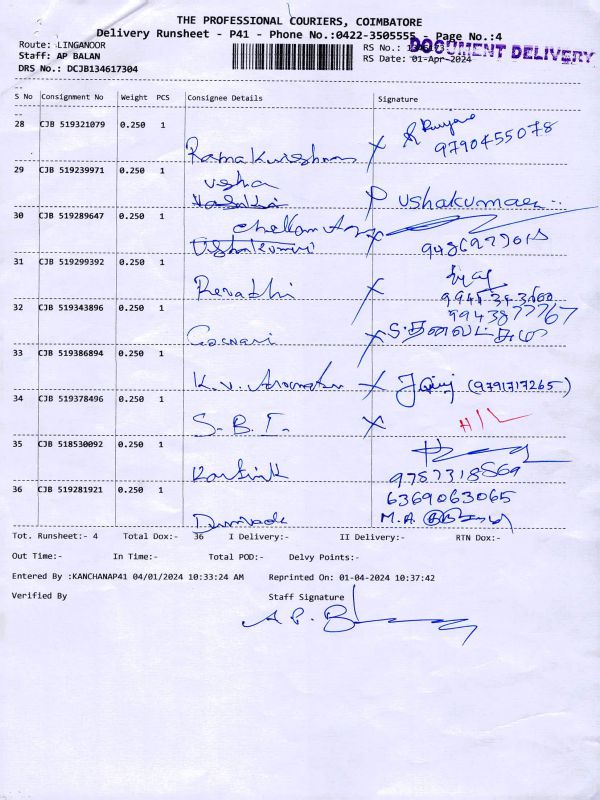 THE PROFESSIONAL COURIERS, COIMBATORE
Delivery Runsheet - P41 - Phone No.:0422-3505555 - Page No.:4
Route: LINGANOOR
RS No.:
DOCUMENT DELIVERY
Staff: AP BALAN
RS Date: 01-Apr-2024
DRS No.: DCJB134617304
S No Consignment No Weight PCS Consignee Details Signature
28 CJB 519321079 0.250 1
9790455078
Ramakrishnan
29 CJB 519239971 0.250 1
usha
ushakumari
30 CJB 519289647 0.250 1
Ushakumari
31 CJB 519299392 0.250 1
Revathi
32 CJB 519343896 0.250 1
9943877767
33 CJB 519386894 0.250 1
K.V. (9791717265)
34 CJB 519378496 0.250 1
H/L
S.B.I.
35 CJB 518530092 0.250 1
Karthik 9787318869
36 CJB 519281921 0.250 1
6369063065
M.A.
Tot. Runsheet:- 4 Total Dox:- 36 I Delivery:- II Delivery:- RTN Dox:-
Out Time:- In Time:- Total POD:- Delvy Points:-
Entered By :KANCHANAP41 04/01/2024 10:33:24 AM Reprinted On: 01-04-2024 10:37:42
Verified By Staff Signature
A P. B